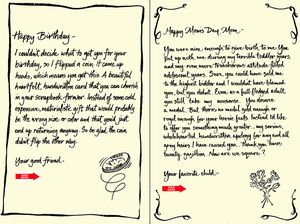 Happy Birthday -
I couldn't decide what to get you for your
birthday, so I flipped a coin. It came up
heads, which means you get this: A beautiful
heartfelt, handwritten card that you can cherish
in your scrapbook forever. Instead of some cold,
expensive, materialistic gift that would probably
be the wrong size or color and that you'd just
end up returning anyway. So be glad the coin
didn't flip the other way.
Your good friend -
Happy Mom's Day, Mom -
You were nice enough to give birth to me. You
put up with me during my horrible toddler years,
and my even more treacherous attitude-filled
adolescent years. Sure, you could have sold me
to the highest bidder and I wouldn't have blamed
you, but you didn't. Even as a full-fledged adult
you still take my nonsense. You deserve
a medal. But there's no medal gold enough or
royal enough for your heroic feats. Instead I'd like
to offer you something much greater - my sincere,
wholehearted, handwritten apology for any and all
gray hairs I have caused you. Thank you, times
twenty gazillion. Now are we square?
Your favorite child -